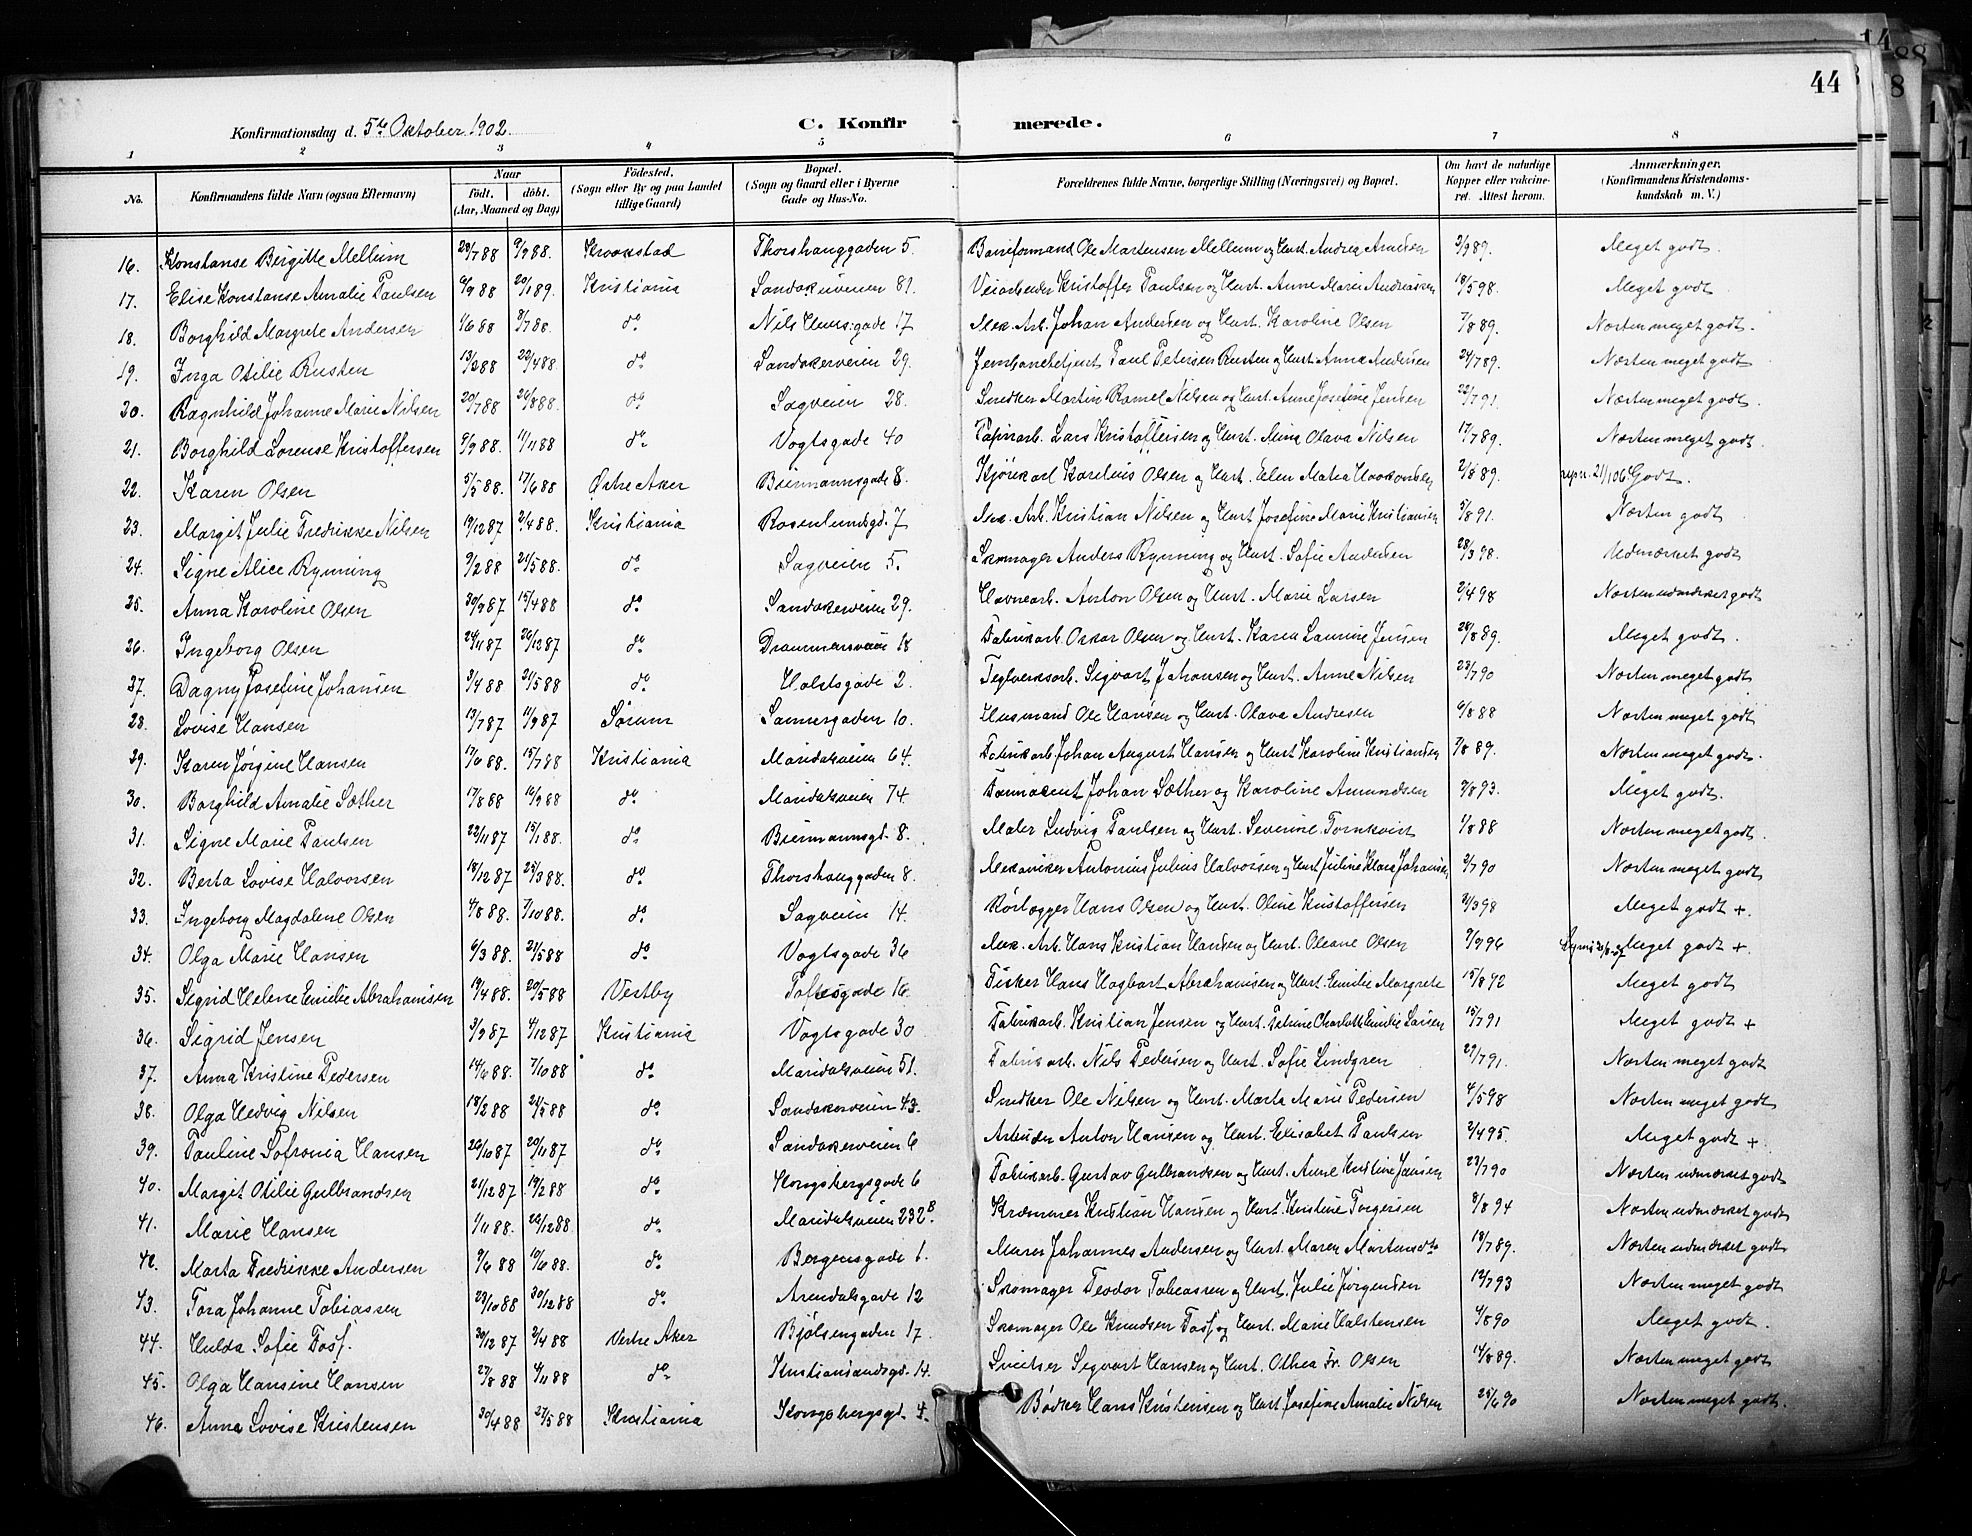 44
Konfirmationsdag d. 5te Oktober 1902. C. Konfir merede.
1 2 3 4 5 6 7 8
No. Konfirmandens fulde Navn (ogsaa Efternavn) Naar født. døbt. (Aar, Maaned og Dag) Fødested. (Sogn eller By og paa Landet tillige Gaard) Bopæl. (Sogn og Gaard eller i Byerne Gade og Hus-No. Forældrenes fulde Navne, borgerlige Stilling (Næringsvei) og Bopæl. Om havt de naturlige Kopper eller vakcineret. Attest herom. Anmærkninger. (Konfirmandens Kristendomskundskab m. V.)
16. Konstanse Birgitte Mellum 29/7 88 9/9 88. Kraakstad Thorshauggaden 5. Baneformand Ole Martensen Mellum og Hust. Andrea Arnesen 2/9 87. Meget godt.
17. Elise Konstanse Amalie Paulsen 6/9 88 20/1 89. Kristiania Sandakerveien 81. Veiarbeider Kristoffer Paulsen og Hust. Anne Marie Andreassen 18/5 98. Meget godt
18. Borghild Margrete Andersen 1/6 88 8/7 88. do Nils Huus:gade 17 Mek. Arb. Johan Andersen og Hust. Karoline Olsen 7/8 89. Næsten meget godt.
19. Inga Otilie Rusten 13/2 88 22/4 88. do Sandakerveien 29. Jernbanebetjent Paul Petersen Rusten og Hust Anna Andersen 24/7 89. Næsten meget godt
20. Ragnhild Johanne Marie Nilsen 20/7 88 26/8 88. do Sagveien 28. Snedker Martin Ramel Nilsen og Hust. Anne Josefine Jensen 22/7 91. Næsten meget godt.
21. Borghild Lorense Kristoffersen 9/9 88. 11/11 88 do Vogtsgade 40 Papirarb. Lars Kristoffersen og Hust. Mina Olava Nilsen 17/7 89. Næsten meget godt.
22. Karen Olsen 5/5 88. 17/6 88 Østre Aker Biermannsgade 8. Kjørekarl Karelius Olsen og Hust. Elen Matea Haakonsen 2/8 89. 21/1 06. Godt.
23. Margit Julie Fredrikke Nilsen 19/12 87 2/4 88. Kristiania Rosenlundsgd. 7 Mek. Arb. Kristian Nilsen og Hust Josefine Marie Kristiansen 5/8 91. Næsten godt
24. Signe Alice Rynning 9/2 88 21/5 88. do Sagveien 5. Skomager Anders Rynning og Hust. Sofie Andersen 28/3 98. Udmærket godt
25. Anna Karoline Olsen 30/9 87 15/4 88 do Sandakerveien 29. Havnearb. Anton Olsen og Hust. Marie Larsen 2/4 98 Næsten udmærket godt
26. Ingeborg Olsen 24/11 87 26/12 87 do Drammensveien 18 Fabrikarb. Oskar Olsen og Hust. Karen Laurine Jensen 24/8 89. Meget godt.
27. Dagny Josefine Johansen 3/4 88 21/5 88 do Holstsgade 2. Teglverksarb. Sigvart Johansen og Hust. Anne Nilsen 23/7 90 Næsten meget godt
28. Lovise Hansen 13/7 87 11/9 87 Sørum Sannergaden 10. Husmand Ole Hansen og Hust. Olava Andresen 6/8 88 Næsten meget godt
29. Karen Jørgine Hansen 17/6 88. 15/7 88 Kristiania Maridalsveien 64. Fabrikarb Johan August Hansen og Hust Karoline Kristiansen 7/8 89. Næsten meget godt.
30. Borghild Amalie Sæther 17/8 88 16/9 88 do Maridalsveien 74. Johan Sæther og Karoline Amundsen 9/8 93. Meget godt.
31. Signe Marie Paulsen 22/11 87 15/1 88. do Biermannsgd. 8. Maler Ludvig Paulsen og Hust. Severine Tornkvist 1/8 88 Næsten meget godt.
32. Berta Lovise Halvorsen 18/12 87 25/3 88. do Thorshauggaden 8. Mekaniker Antonius Julius Halvorsen og Hust Juline Klara Johansen 2/7 90 Næsten meget godt
33. Ingeborg Magdalene Olsen 4/8 88. 7/10 88. do Sagveien 14. Rørlægger Hans Olsen og Hust. Oline Kristoffersen 2/3 98 Meget godt +.
34. Olga Marie Hansen 6/3 88. 21/5 88 do Vogtsgade 36 Mek. Arb. Hans Kristian Hansen og Hust. Oleane Olsen 9/9 96 Meget godt +
35. Sigrid Helene Emilie Abrahamsen 19/4 88. 20/5 88 Vestby Toftesgade 16 Fisker Hans Hagbart Abrahamsen og Hust. Emilie Margrete 15/8 92 Meget godt
36. Sigrid Jensen 3/9 87 4/12 87 Kristiania Vogtsgade 30 Fabrikarb. Kristian Jensen og Hust. Charlotte Emilie Larsen 15/7 91 Meget godt +
37. Anna Kristine Pedersen 14/6 88. 7/10 88 do Maridalsveien 51. Fabrikarb. Nils Pedersen og Hust. Sofie Lindgren 27/7 91. Næsten meget godt
38. Olga Hedvig Nilsen 18/2 88 21/5 88 do Sandakerveien 43. Snedker Ole Nilsen og Hust. Marta Marie Pedersen 4/5 98 Næsten meget godt
39. Pauline Sofronia Hansen 26/10 87 20/11 87 do Sandakerveien 6 Arbeider Anton Hansen og Hust. Elisabet Paulsen 2/4 95. Meget godt +
40. Margit Otilie Gulbrandsen 21/12 87 19/2 88 do Kongsbergsgade 6 Fabrikarb. Gustav Gulbrandsen og Hust. Anne Kristine Jansen 23/7 90 Næsten udmærket godt
41. Marie Hansen 1/11 88. 26/12 88 do Maridalsveien 232 B. Kræmmer Kristian Hansen og Hust. Kristine Torgersen 8/8 94 Næsten udmærket godt
42. Marta Fredrikke Andersen 9/6 88 10/6 88. do Bergensgade 1. Murer Johannes Andersen og Hust. Maren Martinsdtr 18/7 89. Næsten udmærket godt
43. Tora Johanne Tobiassen 23/10 88 30/12 88 do Arendalsgade 12 Skomager Teodor Tobiassen og Hust. Julie Jørgensen 12/7 93 Næsten meget godt
44. Hulda Sofie Foss. 30/12 87 2/4 88 Vestre Aker Bjølsengaden 17. Skomager Ole Knudsen Foss og Hust. Marie Halstensen 4/8 90 Meget godt.
45. Olga Hansine Hansen 27/8 88 4/11 88 do Kristiansandsgd. 14. Sveitser Sigvart Hansen og Hust. Othea Fr. Olsen 14/8 89. Næsten meget godt
46. Anna Lovise Kristensen 30/4 88 27/5 88 Kristiania Kongsbergsgd. 4. Bødker Hans Kristensen og Hust Josefine Amalie Nilsen 25/6 90 Næsten meget godt.